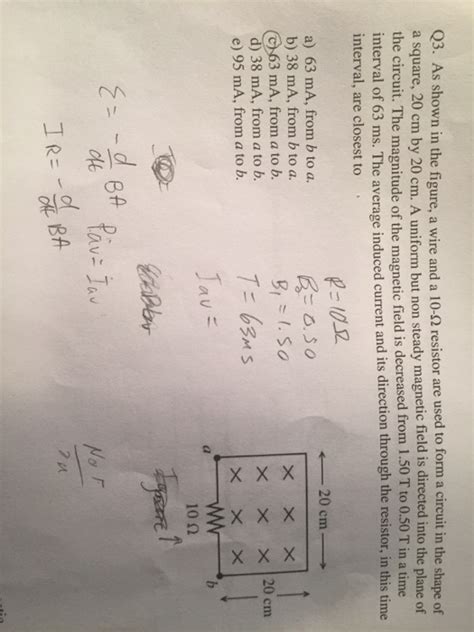 Q3. As shown in the figure, a wire and a 10-Ω resistor are used to form a circuit in the shape of
a square, 20 cm by 20 cm. A uniform but non steady magnetic field is directed into the plane of
the circuit. The magnitude of the magnetic field is decreased from 1.50 T to 0.50 T in a time
interval of 63 ms. The average induced current and its direction through the resistor, in this time
interval, are closest to
a) 63 mA, from b to a.
b) 38 mA, from b to a.
c) 63 mA, from a to b.
d) 38 mA, from a to b.
e) 95 mA, from a to b.
R=10Ω
B₂=0.50
B₁=1.50
T=63ms
Iav=
ε= -d/dt BA Pav=Iav
IR= -d/dt BA
20 cm
× × ×
× × ×
× × ×
20 cm
a
b
10 Ω
Not